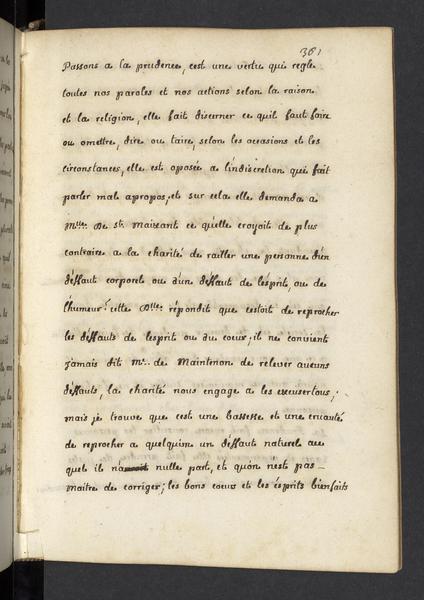 361
Passons a la prudence, c'est une vertu qui regle
toutes nos paroles et nos actions selon la raison
et la religion, elle fait discerner ce quil faut faire
ou omettre, dire ou taire, selon les occasions et les
circonstances, elle est opposée a l'indiscretion qui fait
parler mal apropos, et sur cela elle demanda a
Mlle. De st. Maixant ce qu'elle croyoit de plus
contraire a la charité de railler une personne d'un
deffaut corporel ou d'un deffaut de l'ésprit, ou de
l'humeur? cette Dlle. répondit que cestoit de reprocher
les déffauts de lesprit ou du coeur; il ne convient
jamais dit Me. de Maintenon de relever aucuns
deffauts, la charité nous engage a les excuser tous;
mais je trouve que cest une bassesse et une cruauté
de reprocher a quelquun un deffaut naturel au
quel il n'a nulle part, et quón nest pas
maitre de corriger; les bons coeurs et les ésprits bienfaits